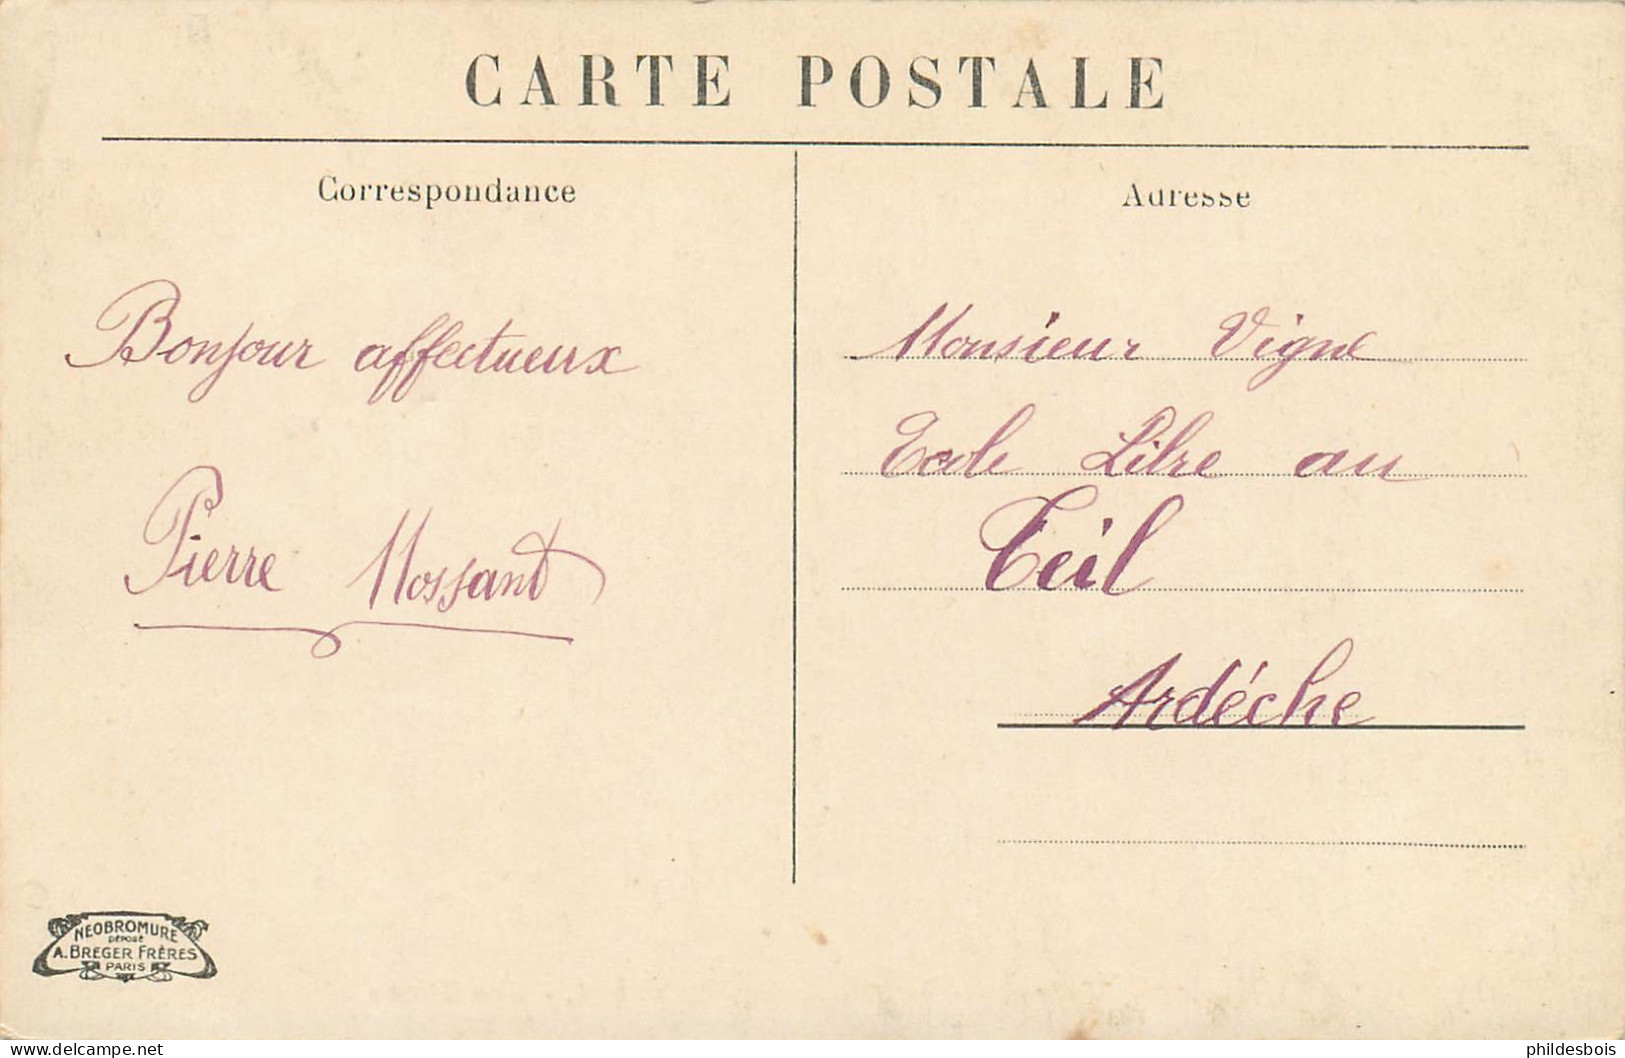 CARTE POSTALE
Correspondance
Adresse
Bonjour affectueux
Pierre Mossant
Monsieur Vigne
Ecole Libre au
Teil
Ardéche
NEOBROMURE
DÉPOSÉ
A. BREGER FRÈRES
PARIS
phildesbois